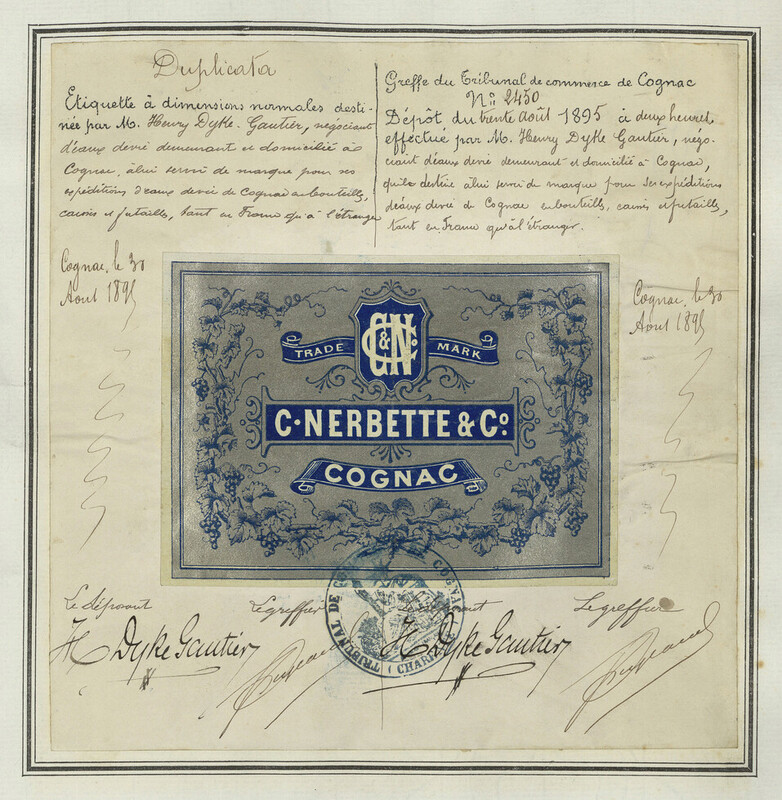 Duplicata
Etiquette à dimensions normales desti-
née par M. Henry Dyke Gautier, négociant
d'eaux devie demeurant et domicilié à
Cognac, àlui servir de marque pour ses
expéditions d'eaux devie de Cognac enbouteills,
caisses et futailles, tant en France qu'à l'étranger
Greffe du Tribunal de commerce de Cognac
No 2450
Dépôt du trente août 1895 à deux heures
effectué par M. Henry Dyke Gautier, négo-
ciant d'eaux devie demeurant et domicilié à Cognac,
qu'ille destine àlui servir de marque pour ses expéditions
d'eaux devie de Cognac enbouteills, caisses et futailles,
tant en France qu'àl'étranger.
Cognac, le 30
Aout 1895
Cognac, le 30
Aout 1895
C&N Co
TRADE MARK
C. NERBETTE & Co
COGNAC
TRIBUNAL DE COGNAC
(CHARENTE)
Le Déposant
Le greffier
Le Déposant
Le greffier
H Dyke Gautier
H Dyke Gautier